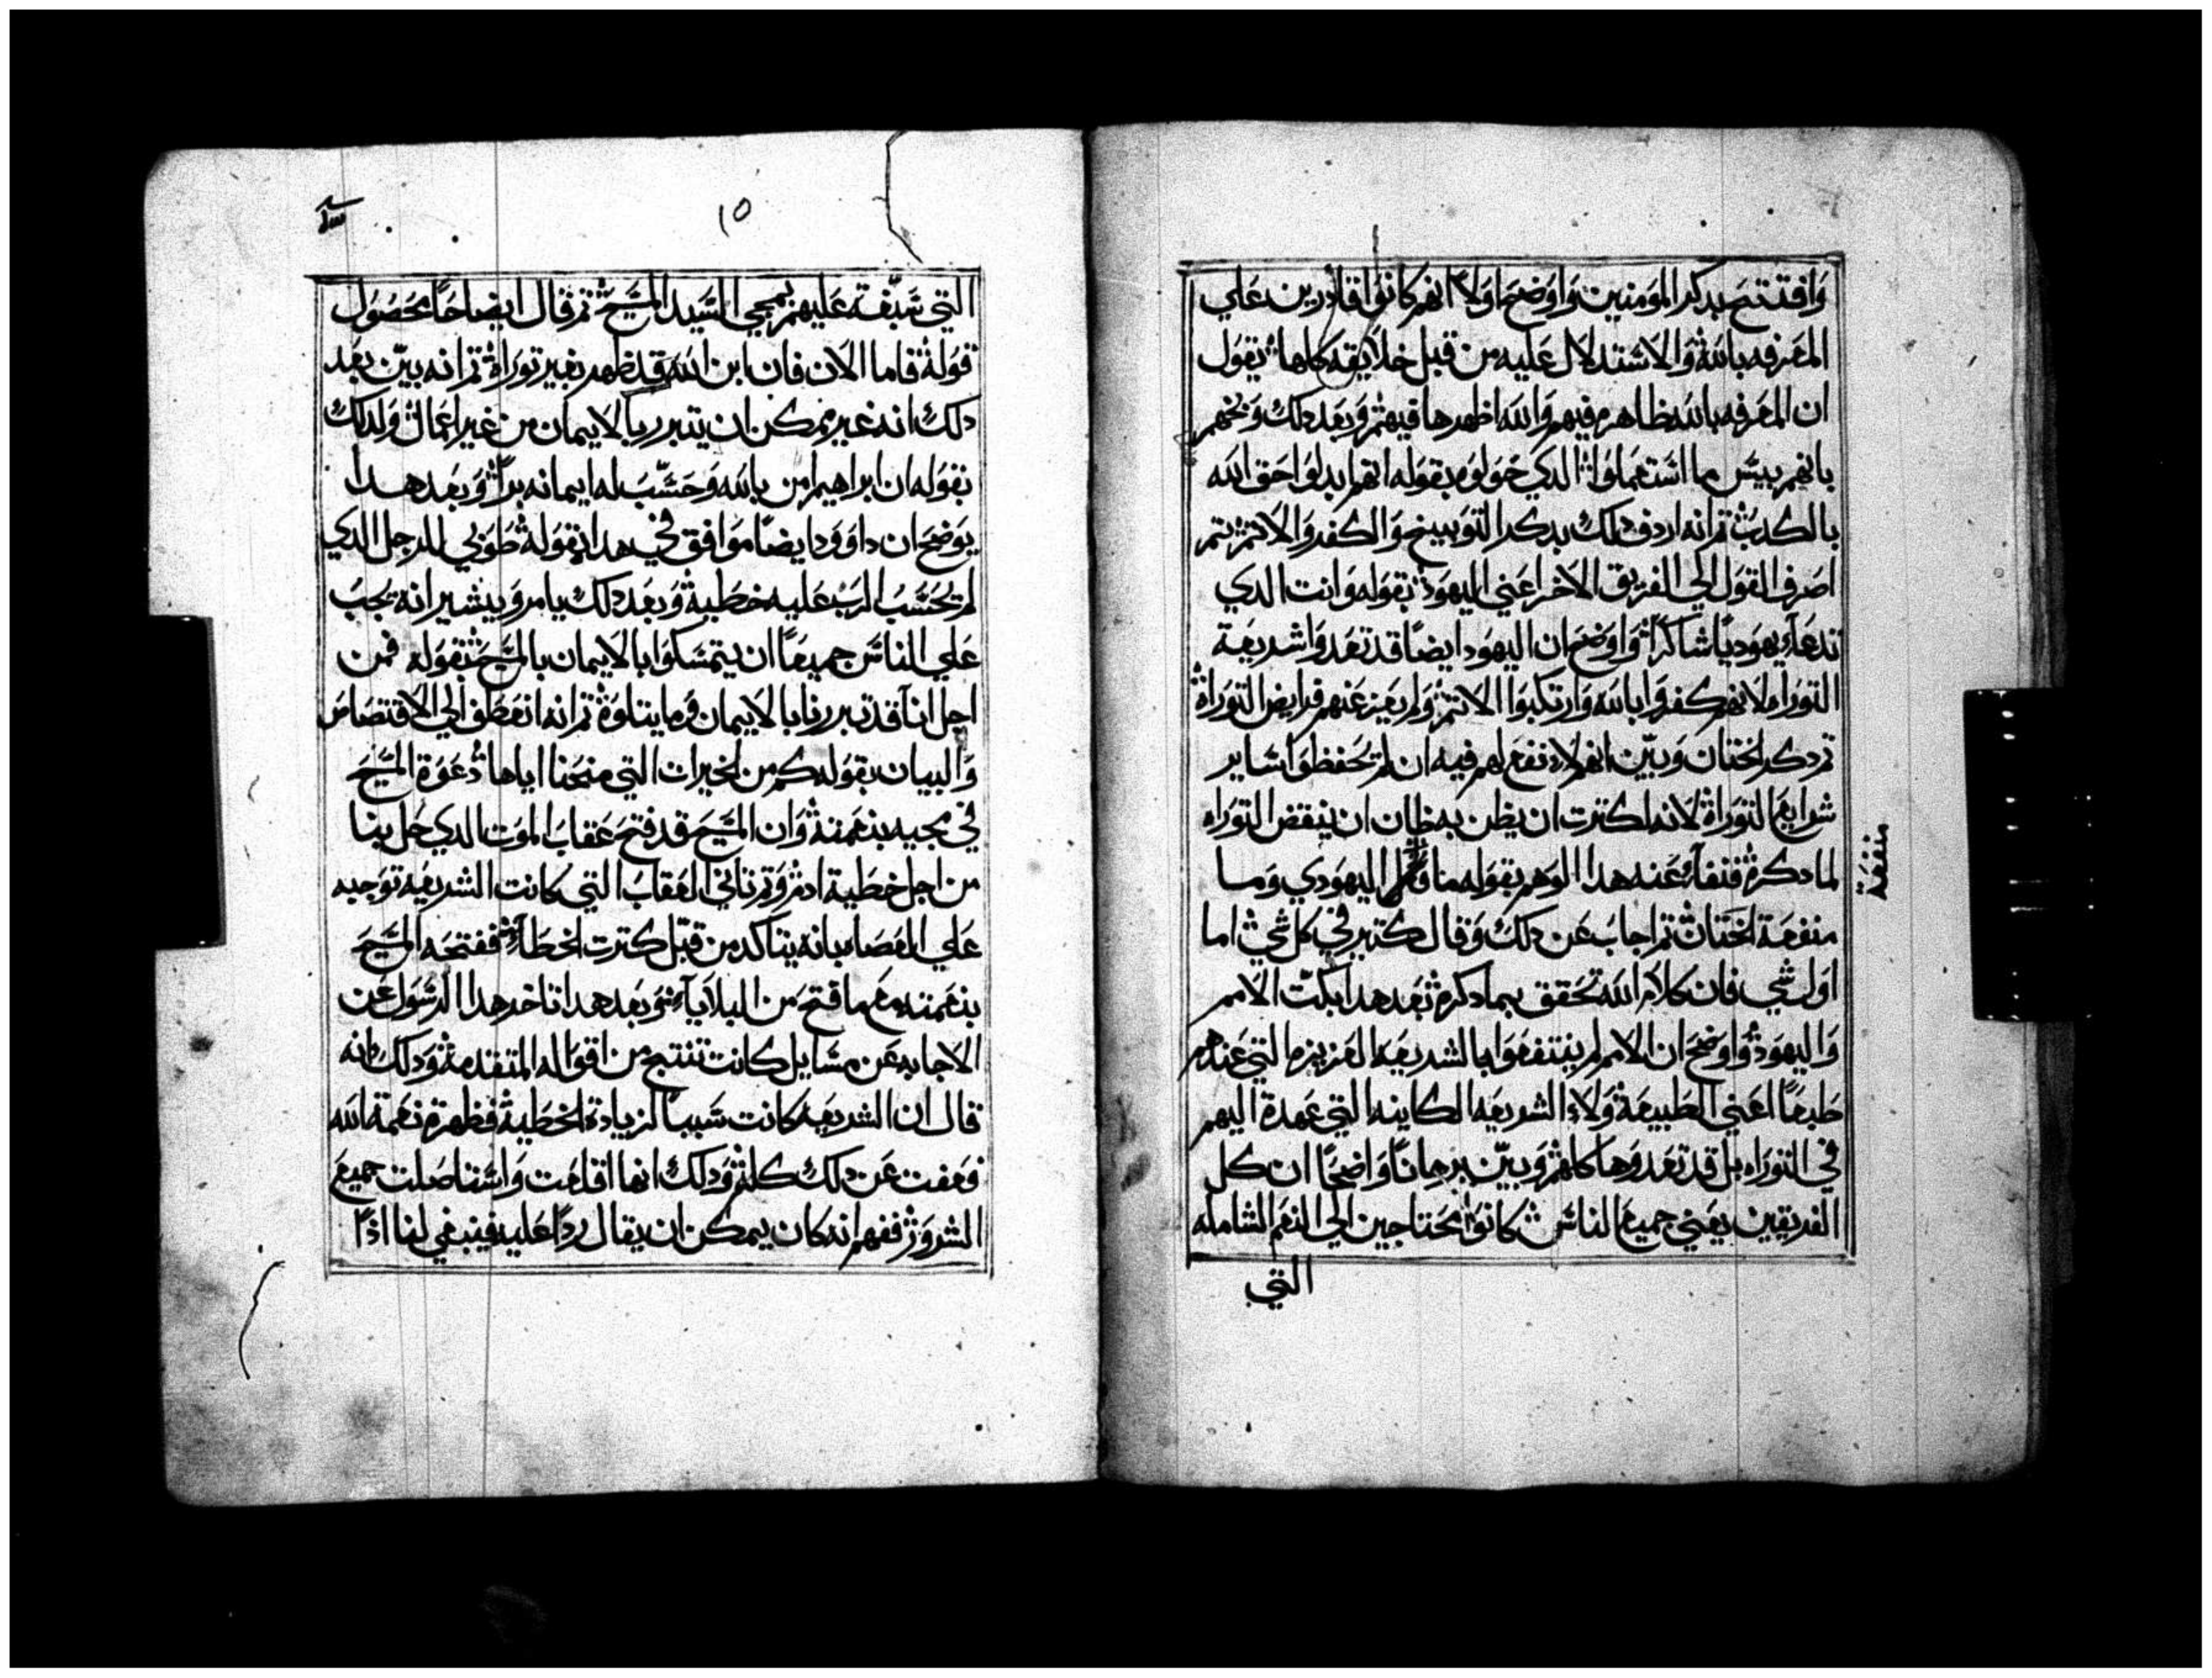 وافتتح بدكر المومنين واوضح اولا انهم كانوا قادرين علي
المعرفه بالله والاستدلال عليه من قبل خلايقه كلها يقول
ان المعرفه بالله ظاهره فيهم والله اظهرها فيهم وبعد دلك وبخهم
بانهم بيس ما استعملوا الدي خولوه بقوله انهم ابدلوا حق الله
بالكدب ثم انه اردف دلك بدكر التوبيخ والكفر والاثم ثم
اصرف القول الي الفريق الاخر اعني اليهود بقوله وانت الدي
تدعاء يهوديا شاكرا واوضح ان اليهود ايضا قد تعدوا شريعة
التوراه لانهم كفروا بالله وارتكبوا الاثم ولم يغن عنهم فرايض التوراة
ثم دكر الختان وبين انهم لا نفع لهم فيه ان لم يحفظوا ساير
شرايع التوراة لانه لكترت ان يظن به ظان ان ينقض التوراه
لما دكره فنفاء عنه هدا الوهم بقوله ما فضل اليهودي وما
منفعة
منفعة الختان ثم اجاب عن دلك وقال كتير في كل شي اما
اول شي فان كلام الله تحقق بما دكره بعد هدا بكت الامم
واليهود واوضح ان الامم لم ينتفعوا بالشريعه العزيزه التي عندهم
طبعا اعني الطبيعة ولا الشريعه الكاينه التي عهدة اليهم
في التوراه بل قد تعدوها كلهم وبين برهانا واضحا ان كل
الفريقين يعني جميع الناس كانوا محتاجين الي النعم الشامله
التي
١٥
التي سبقة عليهم بمجي السيد المسيح ثم قال ايضاحا محصول
قولة فاما الان فان ابن الله قد ظهر بغير توراة ثم انه بين بعد
دلك انه غير ممكن ان يتبرر بالايمان من غير اعمال ولدلك
بقوله ان ابراهيم امن بالله وحسب له ايمانه برا وبعد هدا
يوضح ان داوود ايضا موافق في هدا بقولة طوبي للرجل الدي
لم يحسب الرب عليه خطية وبعد دلك يامر ويشير انه يجب
علي الناس جميعا ان يتمسكوا بالايمان بالمسيح بقوله فمن
اجل اننا قد تبررنا بالايمان وما يتلوة ثم انه انعطف الي الاقتصاص
والبيان بقوله كم من الخيرات التي منحنا اياها دعوة المسيح
في مجيه بنعمتة وان المسيح قد فتح عقاب الموت الدي حل بنا
من اجل خطية ادم وتم ثاني العقاب التي كانت الشريعه توجبه
علي العصاه بانه يتاكد من قبل كترت الخطاء ففتحه المسيح
بنعمته مع ما فتح من البلاياء وبعد هدا اتاخر هدا الرسول عن
الاجابه عن مسايل كانت تنتج من اقواله المتقدمة ودلك انه
قال ان الشريعه كانت سببا لزيادة الخطية فظهرة نعمة الله
فعفت عن دلك كله ودلك انها اقلعت واستاصلت جميع
الشرور ففهم انه كان يمكن ان يقال ردا عليه فينبغي لنا ادا